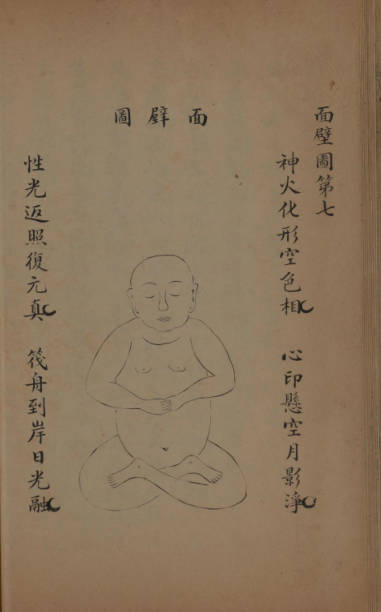 面壁圖第七
神火化形空色相
心印懸空月影淨
面壁圖
性光返照復元真
筏舟到岸日光融